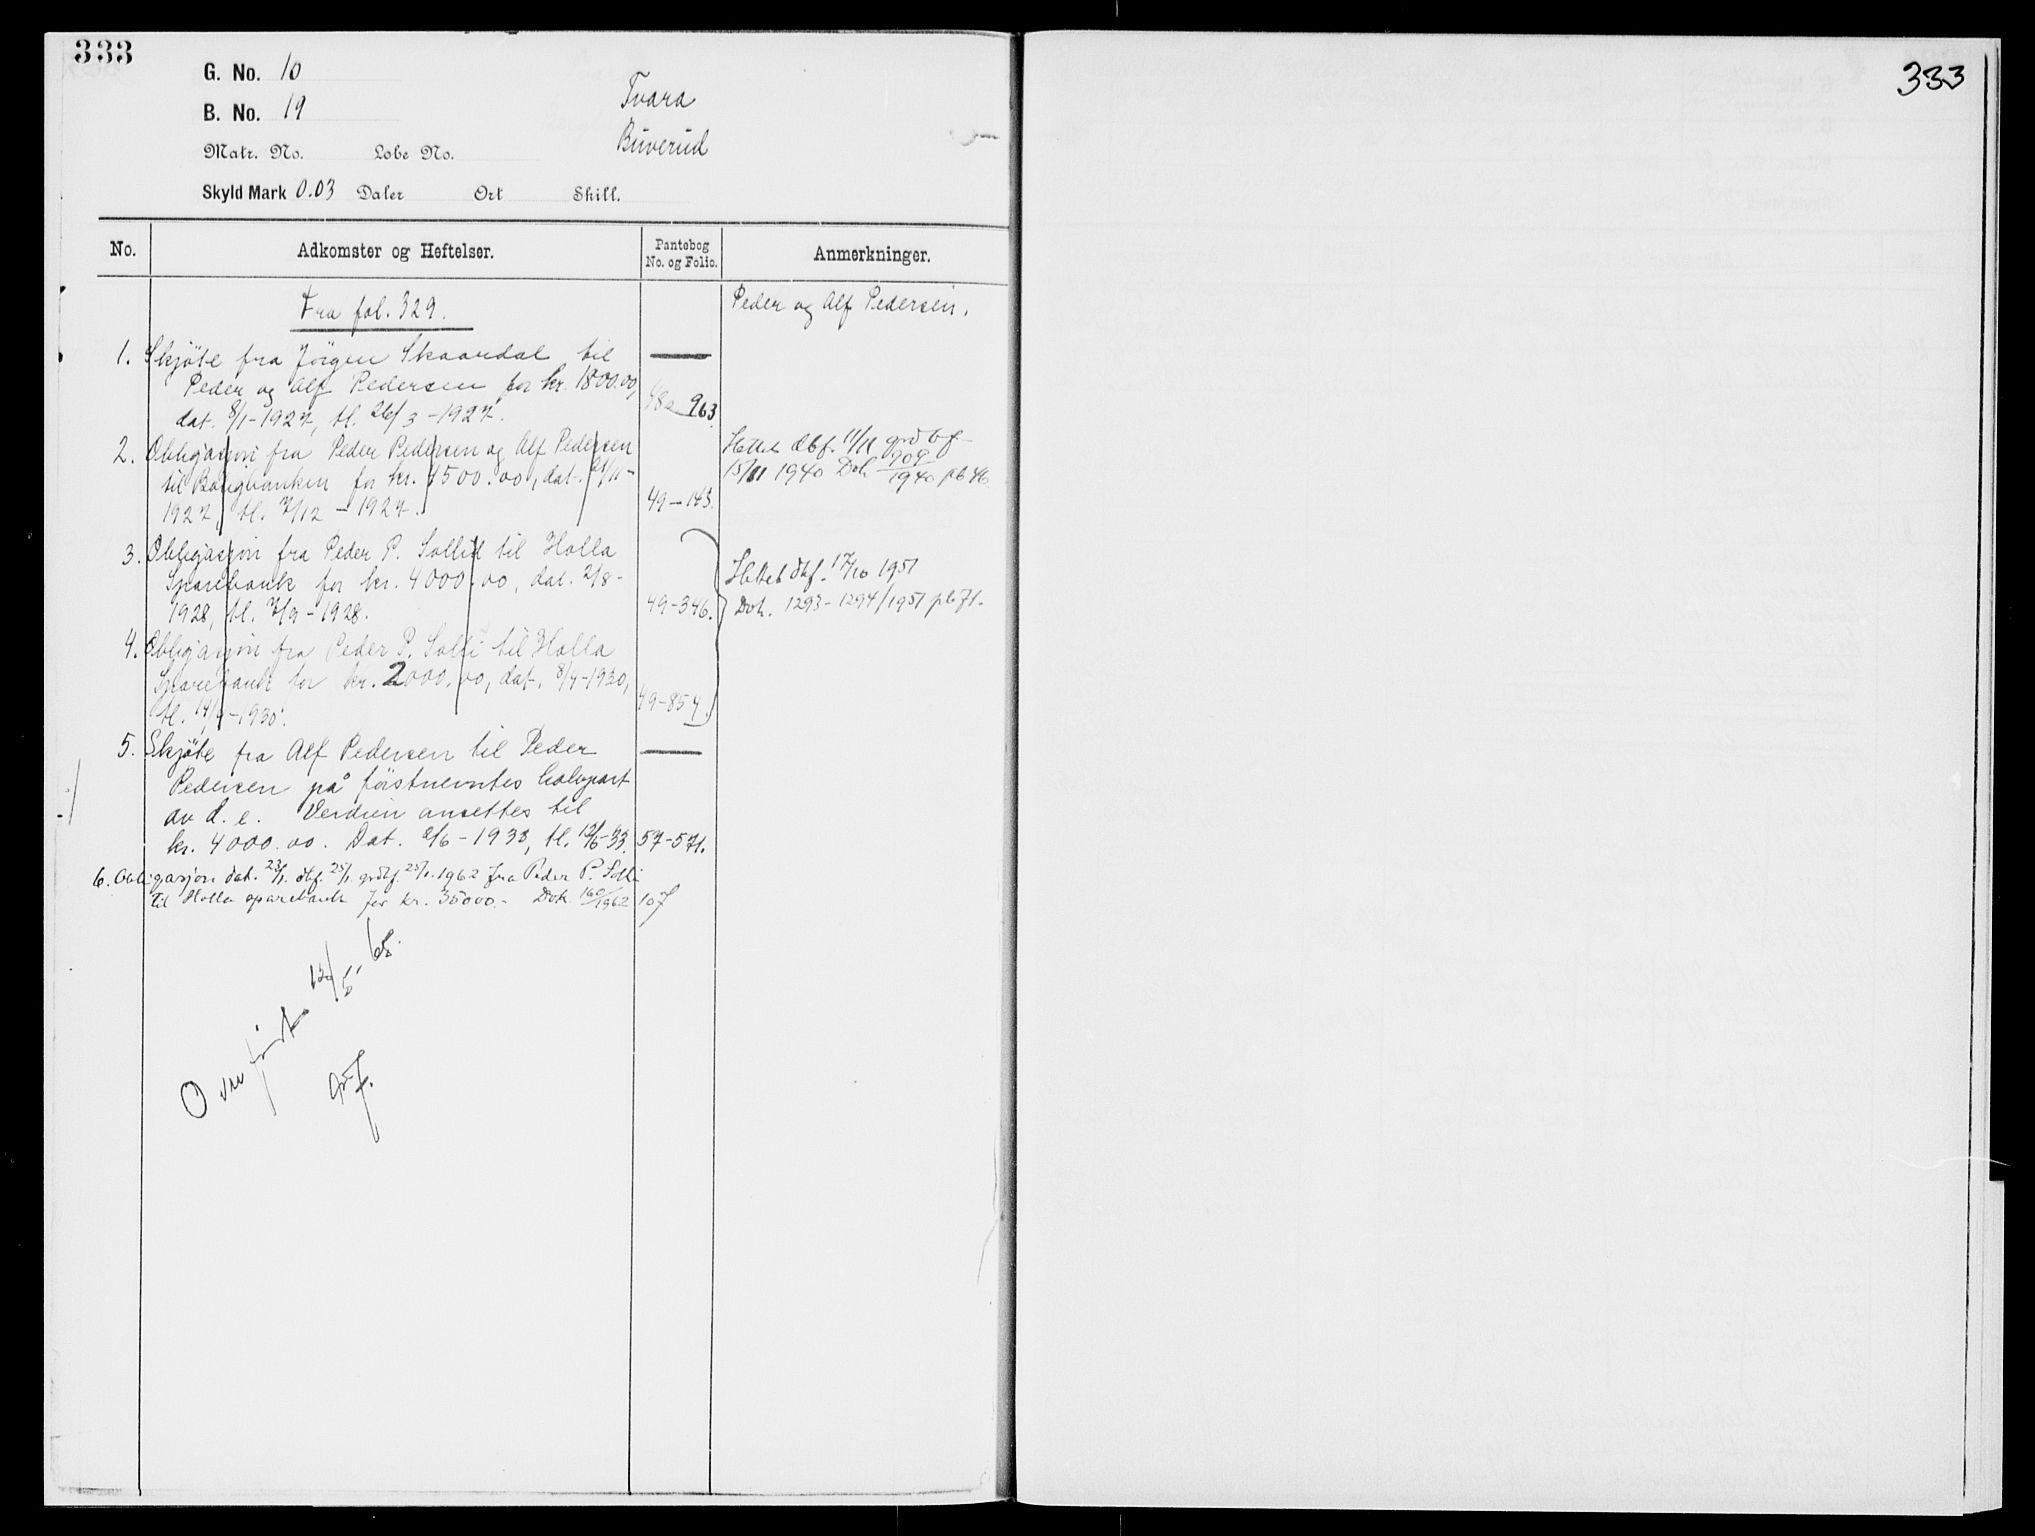 333
G. No. 10
B. No. 19
Tvara
Buverud
Matr. No. Lobe No.
Skyld Mark 0.03 Daler Ort Skill.
No. Adkomster og Heftelser. Pantebog No. og Folio. Anmerkninger.
Fra fol. 329.
Peder og Alf Pedersen.
1. Skjöte fra Jörgen Skaardal til
Peder og Alf Pedersen for kr. 1800.00,
dat. 8/1-1927, tl. 26/3-1927. 48a 963
2. Obligasjon fra Peder Pedersen og Alf Pedersen
til Boligbanken for kr. 4500.00, dat. 21/11-
1927, tl. 7/12-1927. 49-143.
Slettet dbf. 11/11 grdbf
15/11 1940 Dok 709/1940 pb 46
3. Obligasjon fra Peder P. Solli til Holla
Sparebank for kr. 4000.00, dat. 2/8-
1928, tl. 7/9-1928. 49-346.
Slettet dbf. 17/10 1951
Dok. 1293-1294/1951 pb 71.
4. Obligasjon fra Peder P. Solli til Holla
Sparebank for kr. 2000.00, dat. 8/4-1930,
tl. 14/-1930. 49-854.
5. Skjöte fra Alf Pedersen til Peder
Pedersen på förstnevntes halvpart
av d. e. Verdien ansettes til
kr. 4000.00. Dat. 2/6-1933, tl. 12/6-33. 57-571.
6. Obligasjon dat. 23/1. dbf. 25/1. grdbf. 25/1. 1962 fra Peder P. Solli
til Holla sparebank for kr. 35000.- Dok. 160/1962 107
Overført 13/5-65.
333